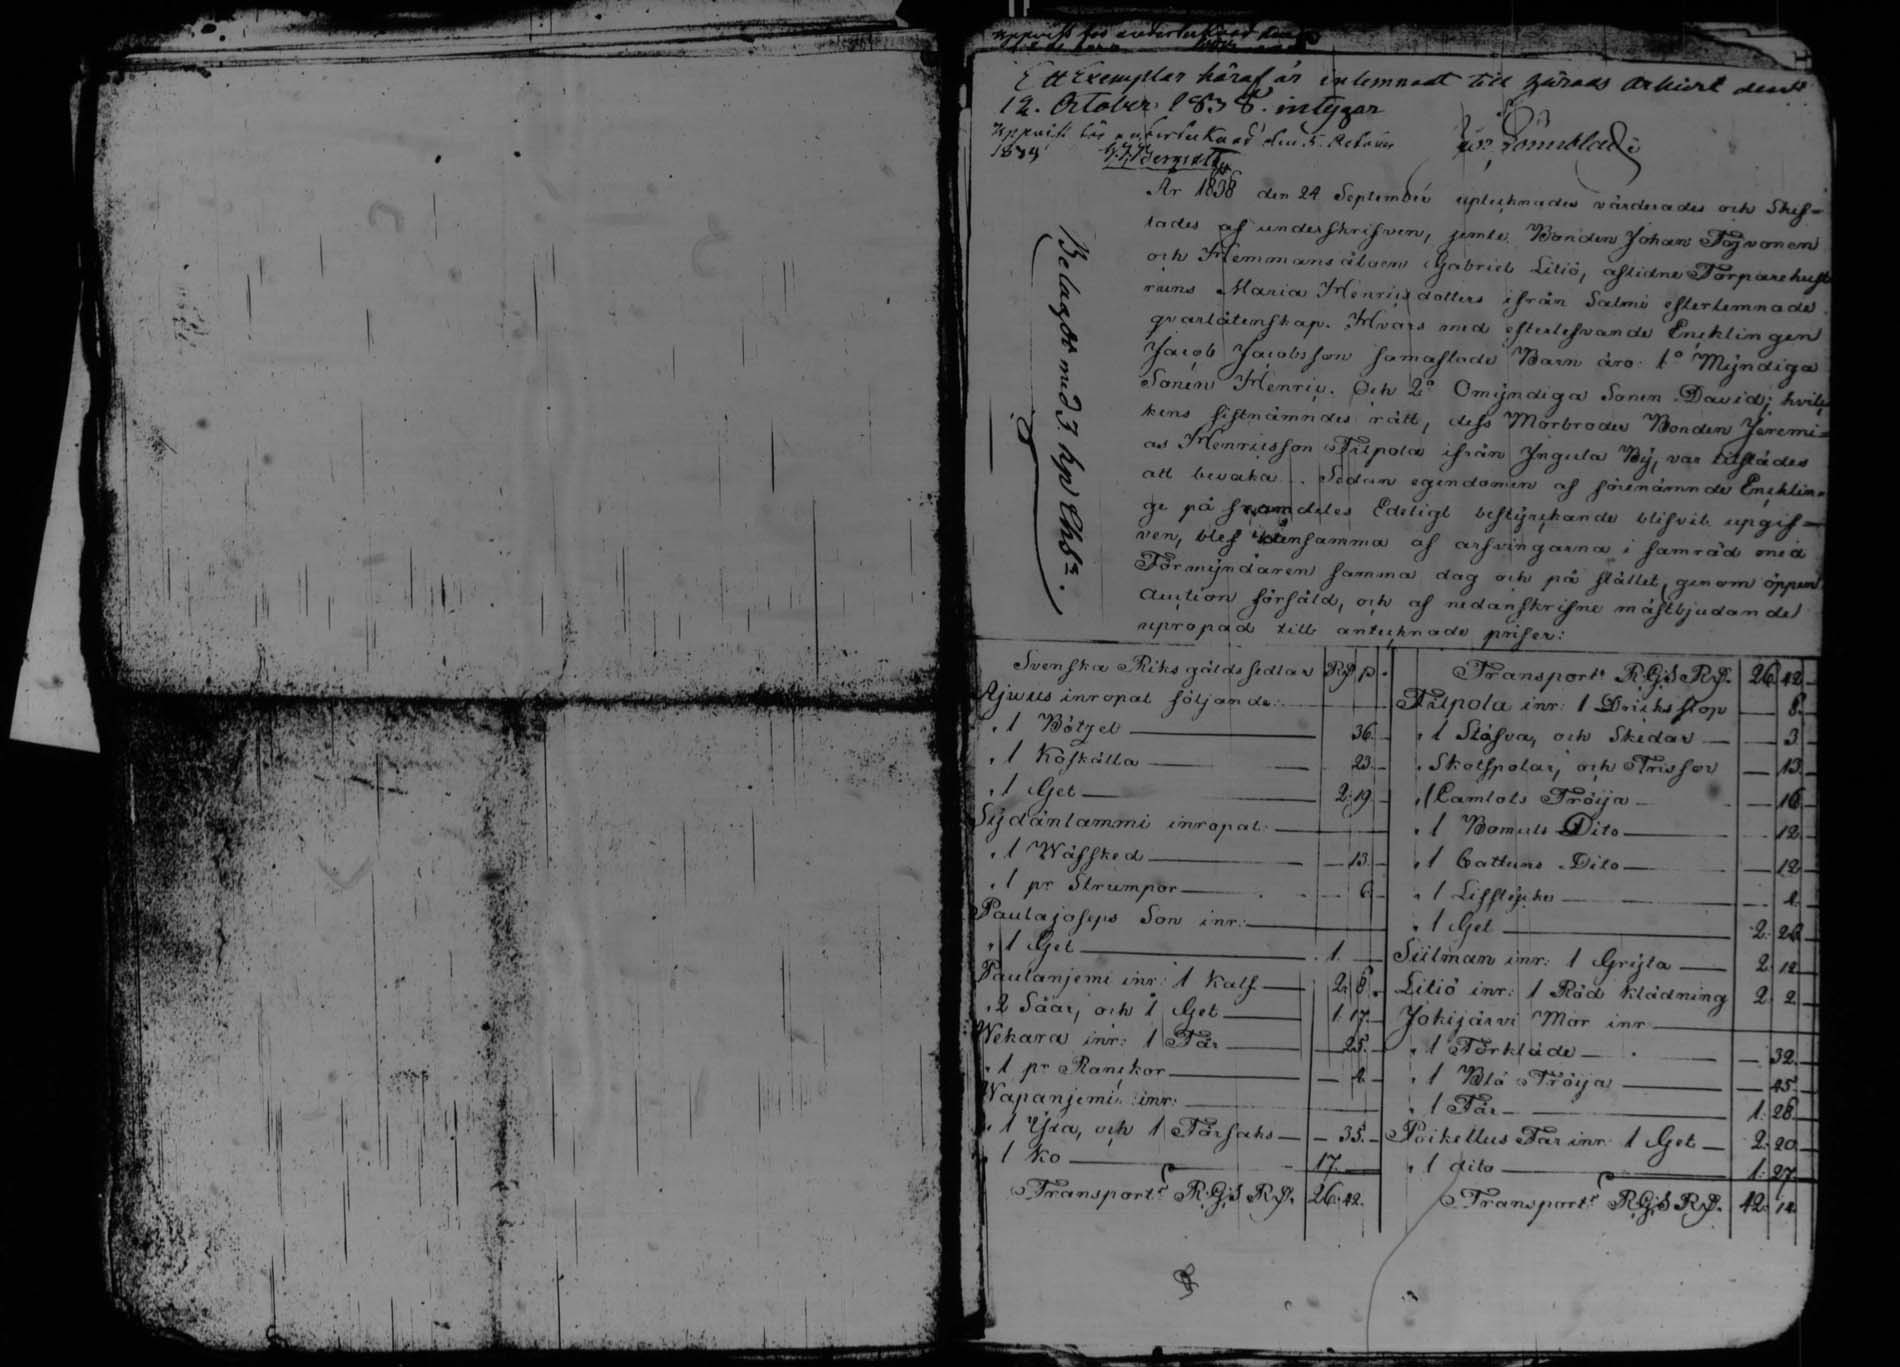 Ett Exemplar häraf är inlemnadt till Härads Arkivet den
12. October 1838. intygar
Uppvist för undertecknad den 5. October
1839
År 1838 den 24 September uptecknades värderades och Skif-
tades af underskrifven, jemte Bonden Johan Töyvonen
och Hemmansåboen Gabriel Litiö, aflidne Torparehust
runs Maria Henricsdotters ifrån Salmi efterlemnade
qvarlåtenskap. Hvars med efterlefvande Encklingen
Jacob Jacobsson samaflade Barn äro 1o Myndiga
Sonen Henric. Och 2o Omyndiga Sonen David; hvil-
kens sistnämndes rätt, dess Morbroder Bonden Jeremi-
as Henricsson Filpola ifrån Ingula By, var tillstädes
att bevaka. Sedan egendomen af förenämnde Encklin-
ge på framdeles Edeligt bestyrckande blifvit upgif-
ven, blef densamma af arfvingarna i samråd med
Förmyndaren samma dag och på stället, genom öppen
Auction försåld, och af nedanskrifne mästbjudande
upropad till antecknade priser:
Belagdt med 3 kp Chtæ.
Svenska Riksgäldssedlar Rd p.
Ajwus inropat följande:
" 1 Bötzel 36.
" 1 Koskälla 23.
" 1 Get 2. 19
Sydänlammi inropat:
" 1 Wäfsked 13.
" 1 pr Strumpor 6.
Paulajoseps Son inr:
" 1 Get 1.
Paulanjemi inr: 1 Kalf 2. 8.
" 2 Såar, och 1 Get 1. 17.
Wekara inr: 1 Får 25.
" 1 pr Ranckor
Napanjemi inr:
" 1 Yxa, och 1 Fårsaks 35.
" 1 Ko 17.
Transport RGS Rd. 26. 42.
Transport RGS Rd. 26. 42
Filpola inr: 1 Dricksstop 8.
" 1 Slöfva, och Skedar 3
" Skotspolar, och Trissor 13
" 1 Camlots Tröija 16
" 1 Bomuls Dito 12
" 1 Cattuns Dito 12
" 1 Lifstycke
" 1 Get 2.
Siitman inr: 1 Gryta 2. 12
Litiö inr: 1 Röd klädning 2. 2
Jokijärvi Mor inr
" 1 Förkläde 32.
" 1 Blå Tröija 45
" 1 Får 1. 28
Poikellus Far inr: 1 Get 2. 20
" 1 dito 1. 27.
Transport RGS Rd. 42. 12